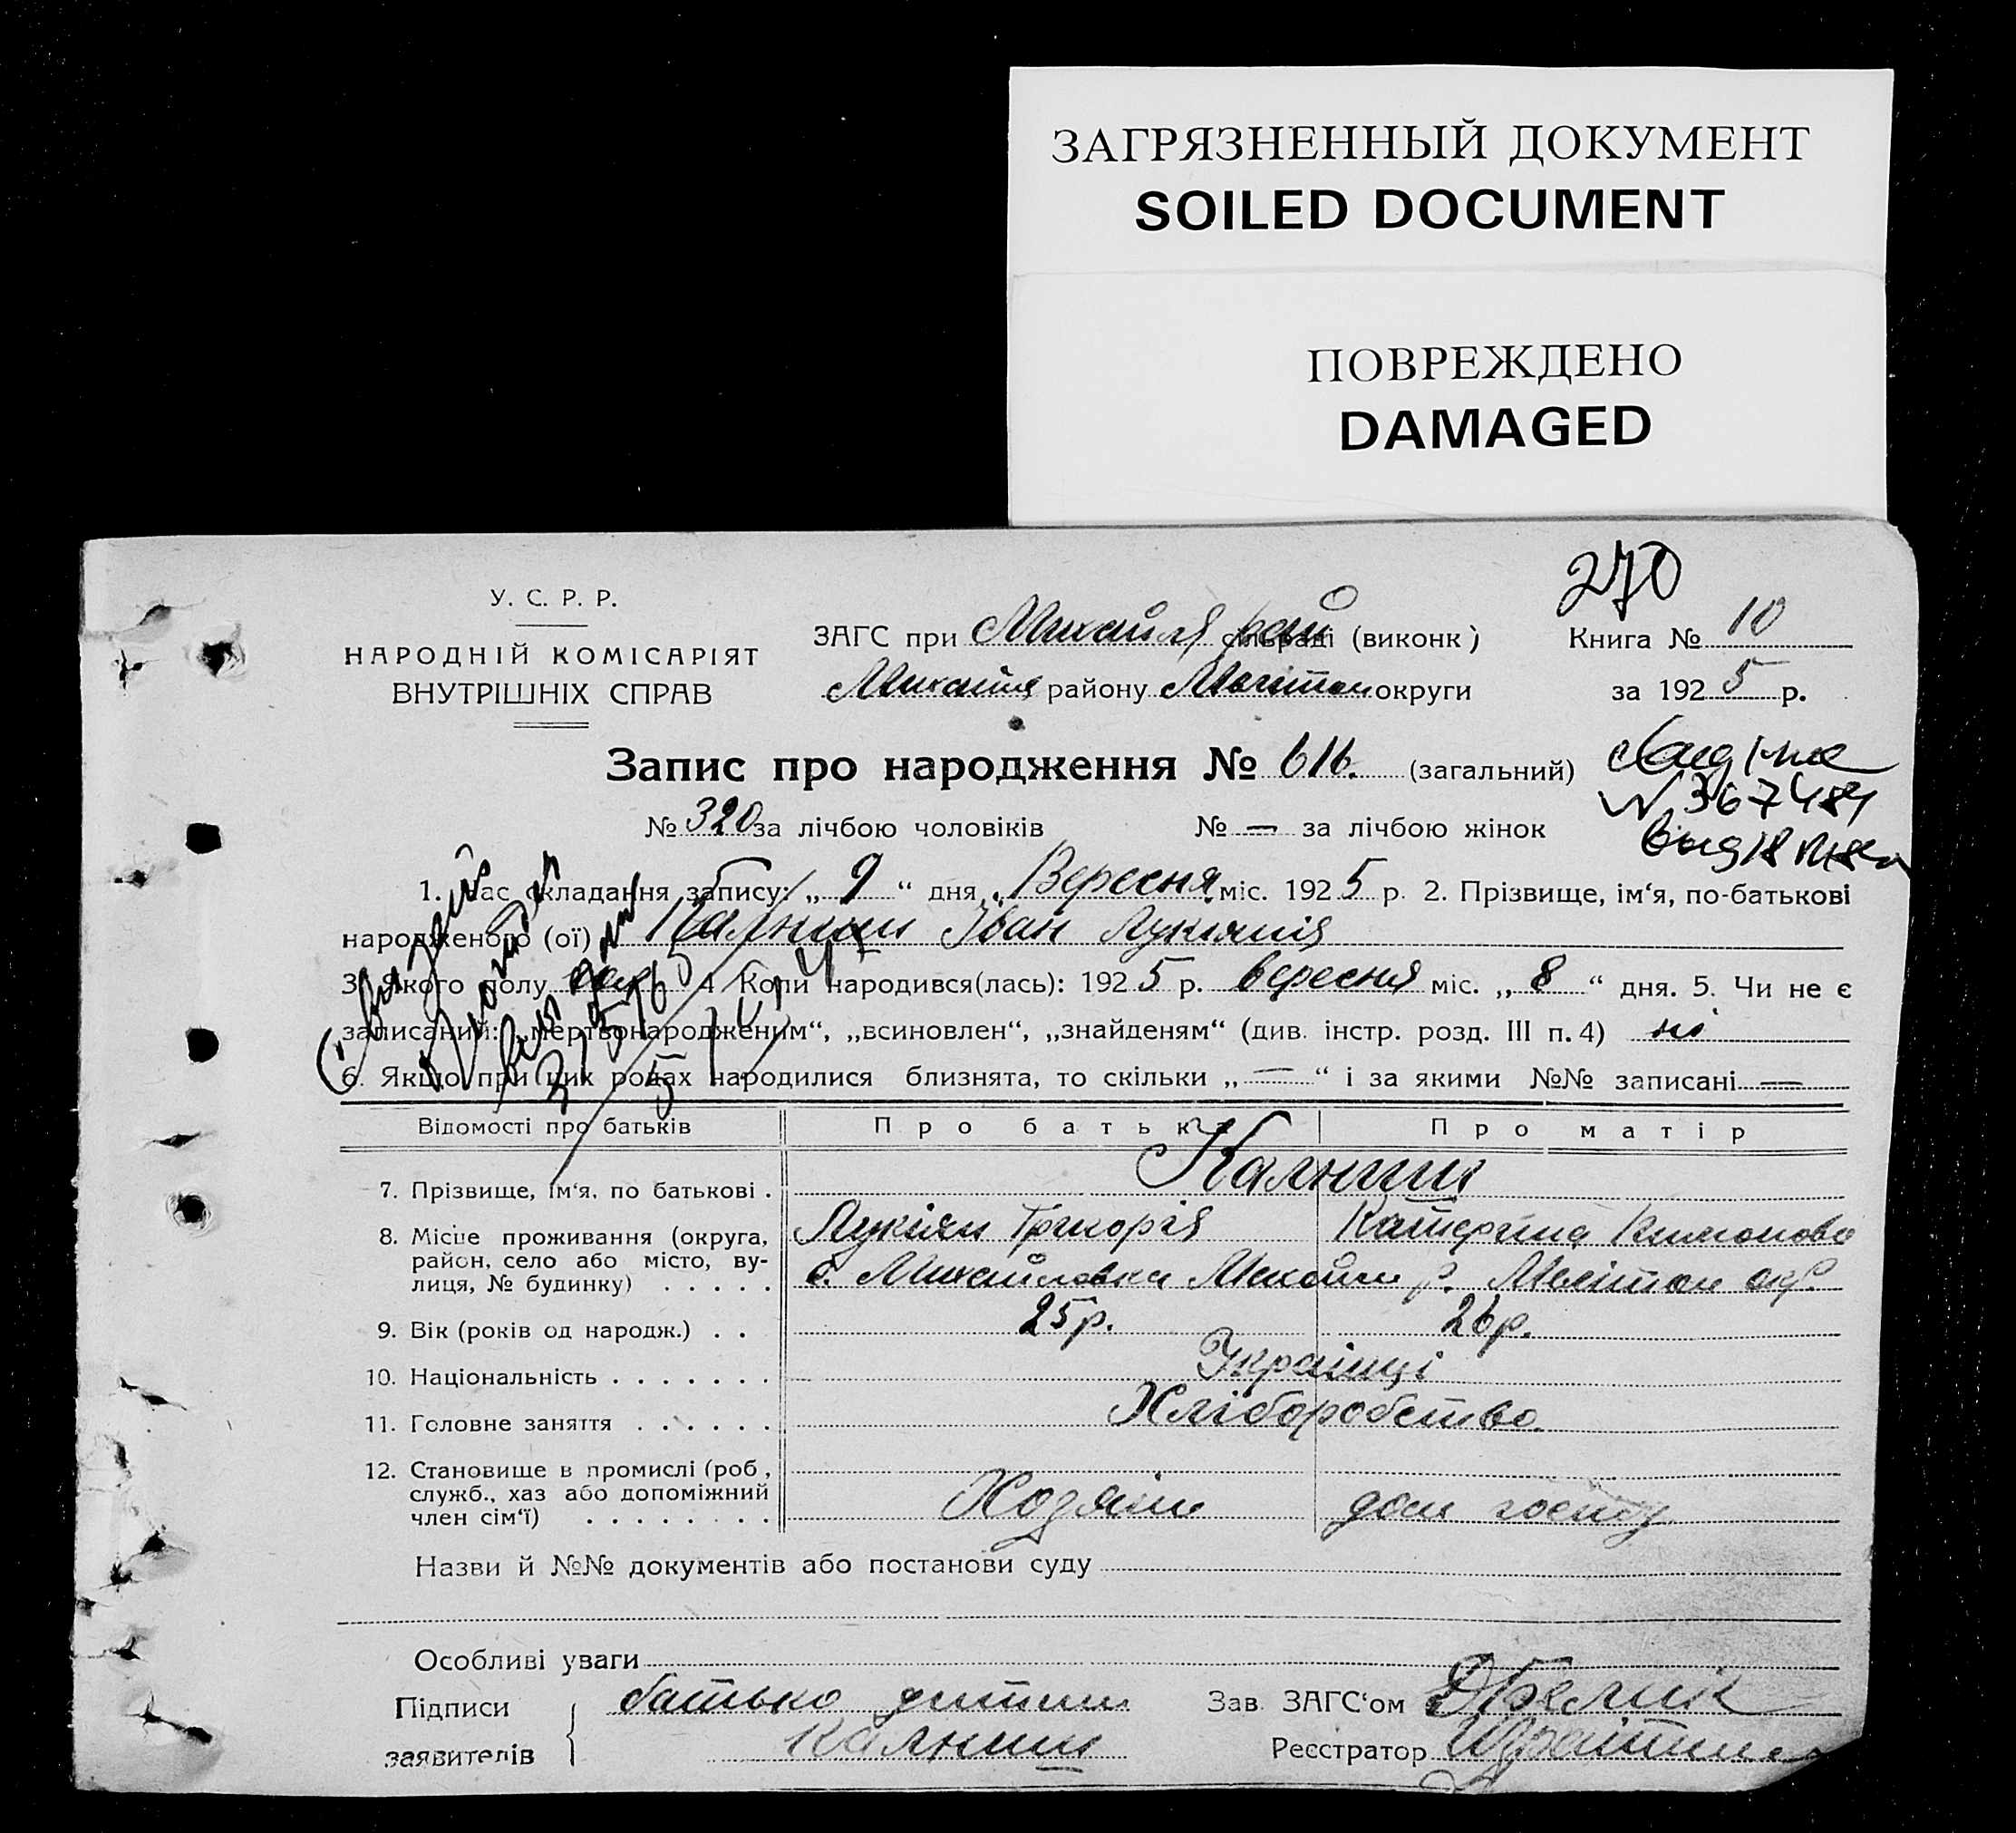 ЗАГРЯЗНЕННЫЙ ДОКУМЕНТ
SOILED DOCUMENT
ПОВРЕЖДЕНО
DAMAGED
270
У. С. Р. Р.
НАРОДНІЙ КОМІСАРІЯТ
ВНУТРІШНІХ СПРАВ
ЗАГС при Михайл рай сільраді (виконк)
Книга № 10
района Мелітоп округи
за 1925 р.
Запис про народження № 616. (загальний)
№ 320 за лічбою чоловіків № — за лічбою жінок
N 367484
1. Час складання запису: „ 9 “ дня „ Вересня міс. 1925 р. 2. Прізвище, ім‘я, по-батькові
народженого (ої) Калниш Іван Лукіянів
3. Якого полу 4 Коли народився(лась): 1925 р. вересня міс. „ 8 “ дня. 5. Чи не є
записаний: „мертвонародженим“, „всиновлен“, „знайденям“ (див. інстр. розд. III п. 4) ні
6. Якщо при цих родах народилися близнята, то скільки „ — “ і за якими №№ записані —
Відомості про батьків
Про батька
Про матір
7. Прізвище, ім‘я, по батькові .
Калниш
8. Місце проживання (округа,
район, село або місто, ву-
лиця, № будинку) . . . . .
Лукіян Григорів
Катерина
с. Михайловка р. Меліт окр.
9. Вік (років од народж.) . .
25 р.
26 р.
10. Національність . . . . . . .
Українці
11. Головне заняття . . . . . .
Хліборобство.
12. Становище в промислі (роб,
служб., хаз або допоміжний
член сім‘ї) . . . . . . . .
Хозяїн
дом
Назви й №№ документів або постанови суду
Особливі уваги
Підписи
заявителів
батько дитини
Калниш
Зав. ЗАГС‘ом
Реєстратор